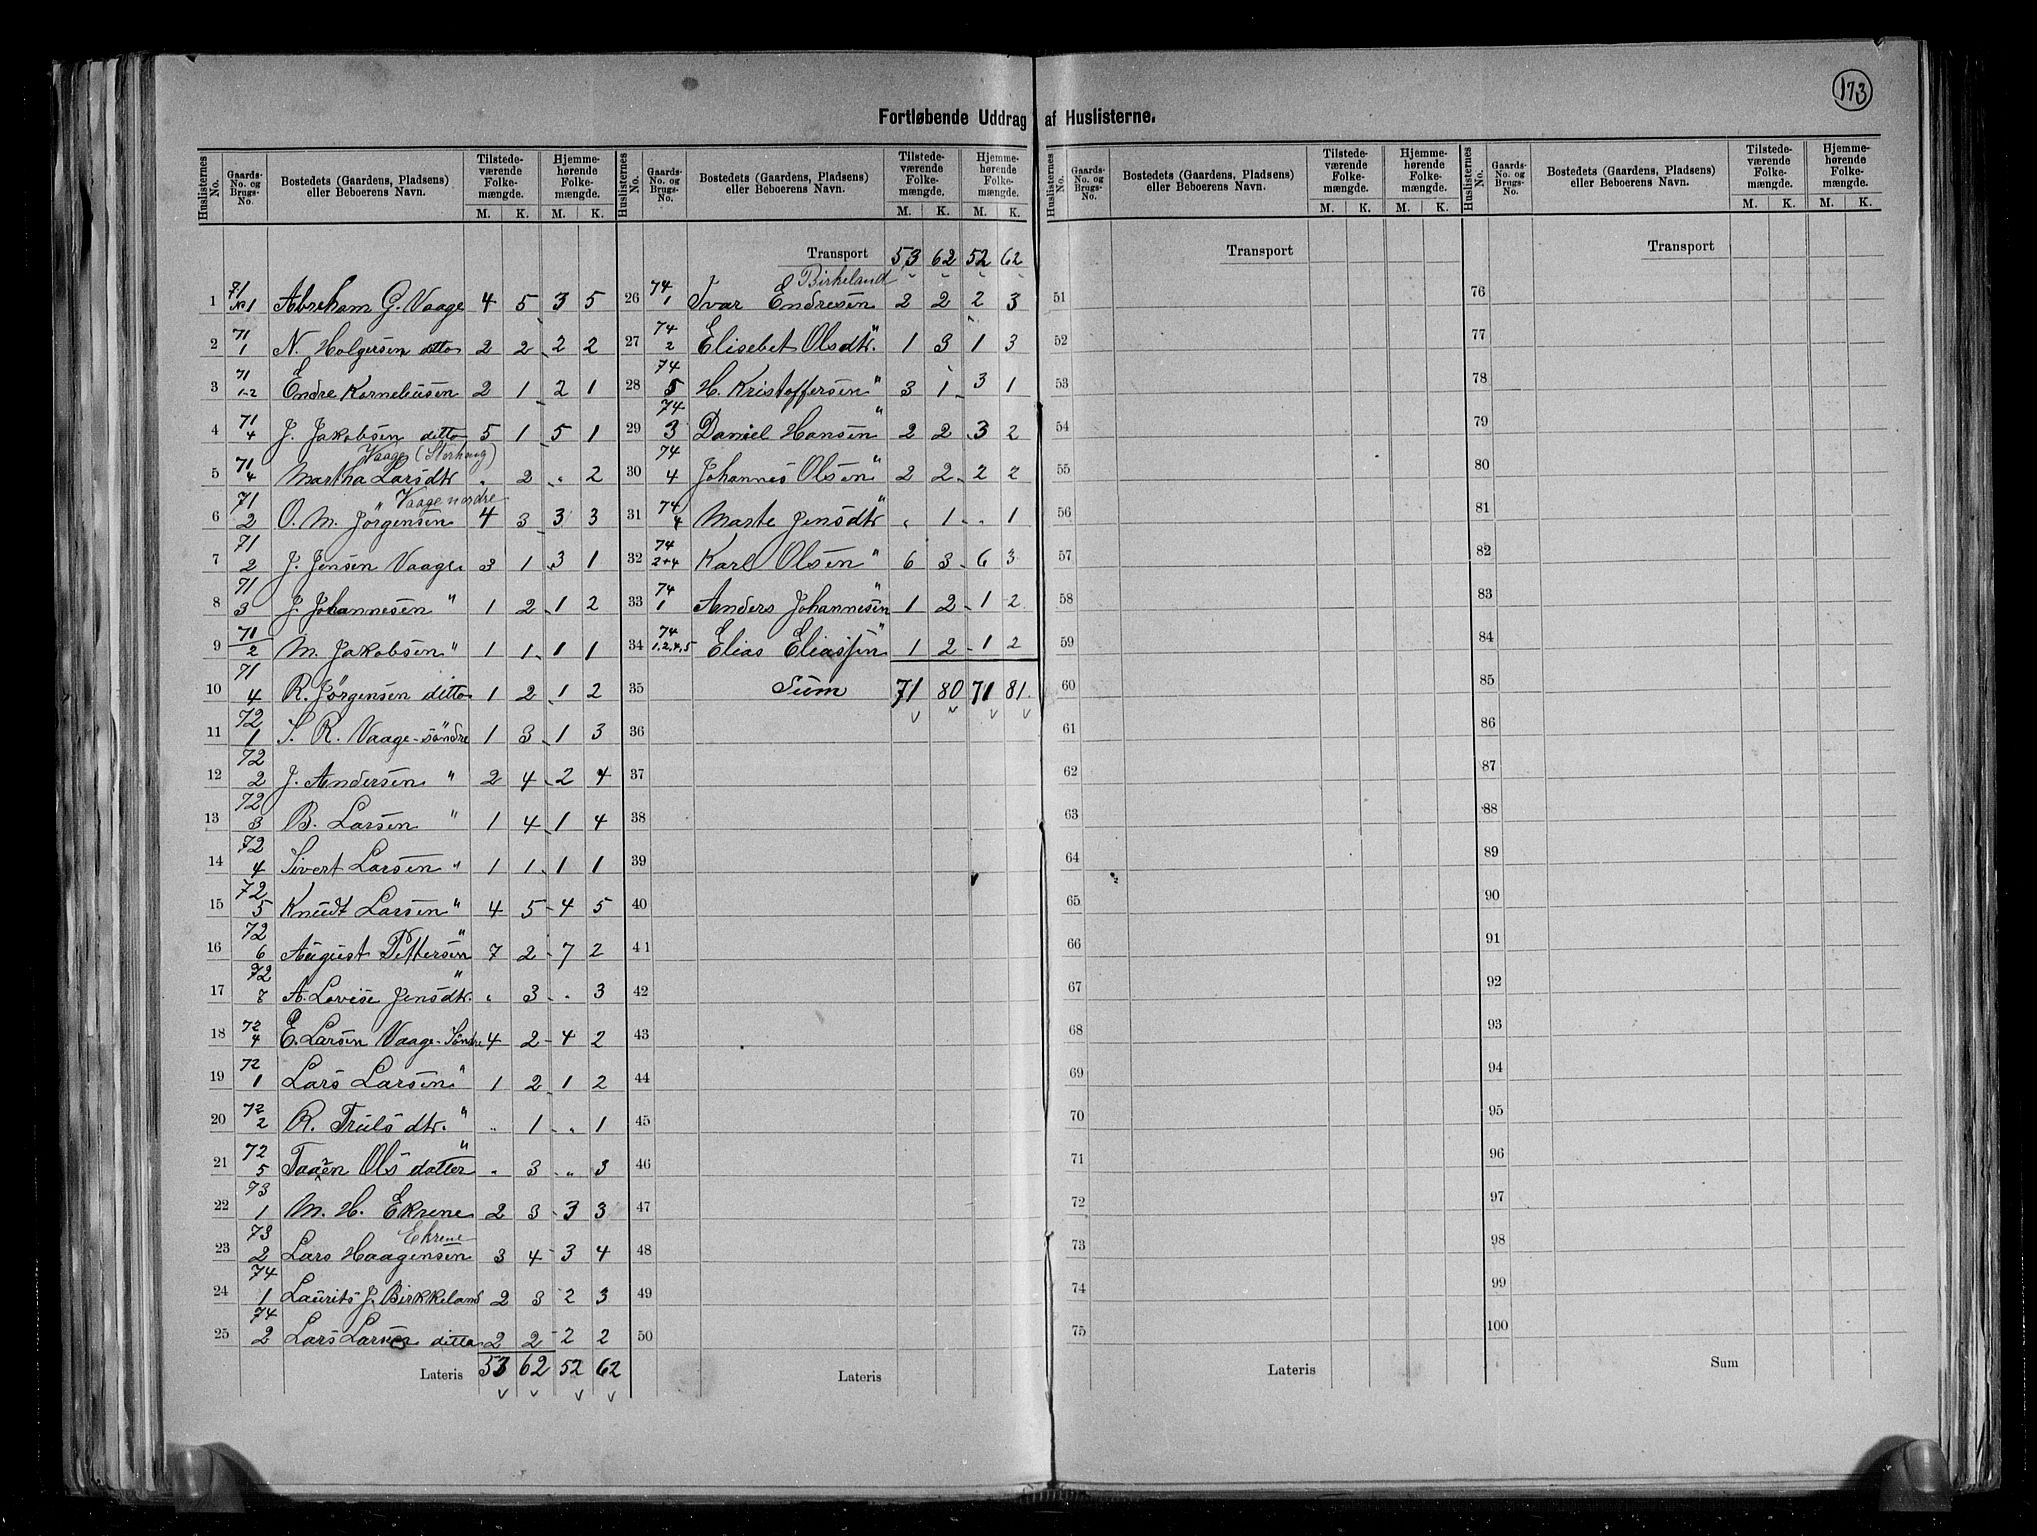 173
Fortløbende Uddrag af Huslisterne.
Huslisternes No. Gaards-No. og Brugs-No. Bostedets (Gaardens, Pladsens) eller Beboerens Navn. Tilstedeværende Folkemængde. M. K. Hjemmehørende Folkemængde. M. K.
1 71 No 1 Abreham G. Vaage 4 5 3 5
2 71 1 N. Holgersen ditto 2 2 2 2
3 71 1-2 Endre Korneliusen 2 1 2 1
4 71 4 J. Jakobsen ditto 5 1 5 1
Vaage (Storhaug)
5 71 4 Martha Larsdtr " 2 " 2
" Vaage nordre
6 71 2 O. M. Jörgensen 4 3 3 3
7 71 2 J. Jensen Vaage 3 1 3 1
8 71 3 J. Johannesen " 1 2 1 2
9 71 2 M. Jakobsen " 1 1 1 1
10 71 4 R. Jörgensen ditto 1 2 1 2
11 72 1 S. R. Vaage-söndre 1 3 1 3
12 72 2 J. Andersen " 2 4 2 4
13 72 3 B. Larsen " 1 4 1 4
14 72 4 Sivert Larsen " 1 1 1 1
15 72 5 Knudt Larsen " 4 5 4 5
16 72 6 August Pettersen " 7 2 7 2
17 72 8 A. Lovise Jensdtr. " " 3 " 3
18 72 4 E. Larsen Vaage-Söndre 4 2 4 2
19 72 1 Lars Larsen " 1 2 1 2
20 72 2 R. Truls dtr. " " 1 " 1
21 72 5 Taaren Ols datter " " 3 " 3
22 73 1 M. H. Ekrene 2 3 3 3
Ekrene
23 73 2 Lars Haagensen 3 4 3 4
24 74 1 Laurits J. Birkkeland 2 3 2 3
25 74 2 Lars Larsen ditto 2 2 2 2
Lateris 53 62 52 62
Huslisternes No. Gaards-No. og Brugs-No. Bostedets (Gaardens, Pladsens) eller Beboerens Navn. Tilstedeværende Folkemængde. M. K. Hjemmehørende Folkemængde. M. K.
Transport 53 62 52 62
Birkeland
26 74 1 Ivar Endresen 2 2 2 3
27 74 2 Elisebet Olsdtr. " 1 3 1 3
28 74 5 H. Kristoffersen " 3 1 3 1
29 74 3 Daniel Hansen " 2 2 3 2
30 74 4 Johannes Olsen " 2 2 2 2
31 74 4 Marte Jensdtr " " 1 " 1
32 74 2+4 Karl Olsen " 6 3 6 3
33 74 1 Anders Johannesen " 1 2 1 2
34 74 1,2,4,5 Elias Eliassen " 1 2 1 2
35 Sum 71 80 71 81
36
37
38
39
40
41
42
43
44
45
46
47
48
49
50
Lateris
Huslisternes No. Gaards-No. og Brugs-No. Bostedets (Gaarden, Pladsens) eller Beboerens Navn. Tilstedeværende Folkemængde. M. K. Hjemmehørende Folkemængde. M. K.
Transport
51
52
53
54
55
56
57
58
59
60
61
62
63
64
65
66
67
68
69
70
71
72
73
74
75
Lateris
Huslisternes No. Gaards-No. og Brugs-No. Bostedets (Gaarden, Pladsens) eller Beboerens Navn. Tilstedeværende Folkemængde. M. K. Hjemmehørende Folkemængde. M. K.
Transport
76
77
78
79
80
81
82
83
84
85
86
87
88
89
90
91
92
93
94
95
96
97
98
99
100
Sum